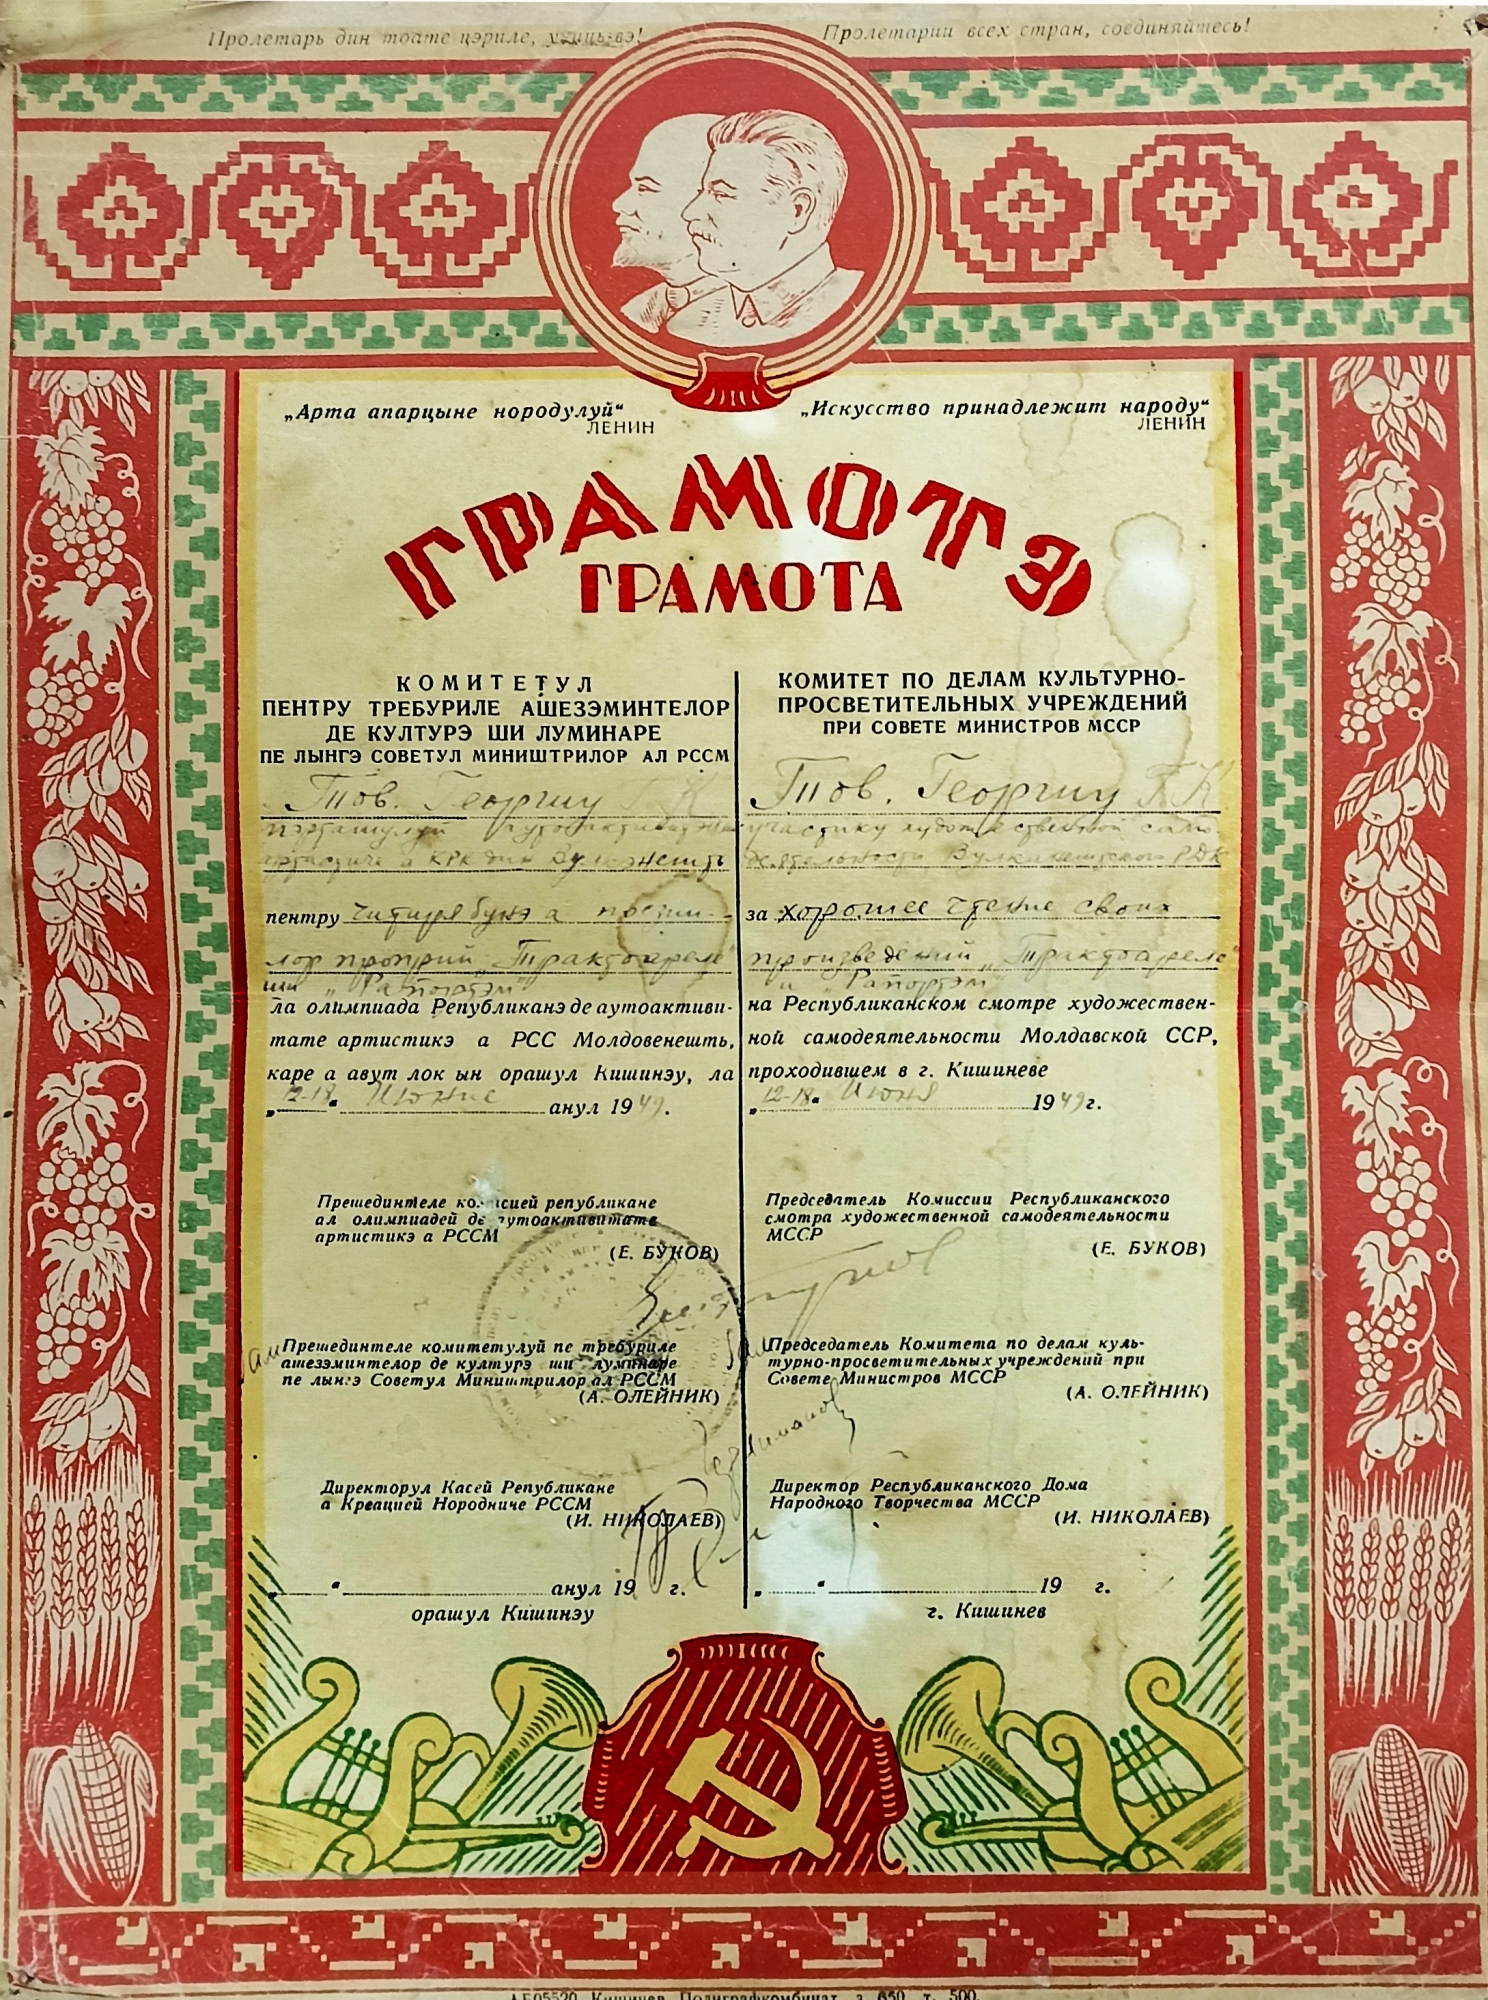 Пролетарь дин тоате цэриле, униць-вэ!
Пролетарии всех стран, соединяйтесь!
„Арта апарцыне нородулуй“
ЛЕНИН
„Искусство принадлежит народу“
ЛЕНИН
ГРАМОТЭ
ГРАМОТА
КОМИТЕТУЛ
ПЕНТРУ ТРЕБУРИЛЕ АШЕЗЭМИНТЕЛОР
ДЕ КУЛТУРЭ ШИ ЛУМИНАРЕ
ПЕ ЛЫНГЭ СОВЕТУЛ МИНИШТРИЛОР АЛ РССМ
Тов. Георгиу Г. К
артистиче а КРК дин Вулкэнешть
пентру читиря бунэ а
лор проприй „Трактоареле“
ши „Рапортэм“
ла олимпиада Републиканэ де аутоактиви-
тате артистикэ а РСС Молдовенешть,
каре а авут лок ын орашул Кишинэу, ла
„12-18“ Июние анул 1949.
Прешединтеле комисией републикане
ал олимпиадей де аутоактивитате
артистикэ а РССМ
(Е. БУКОВ)
Прешединтеле комитетулуй пе требуриле
ашезэминтелор де културэ ши луминаре
пе лынгэ Советул Миништрилор ал РССМ
(А. ОЛЕЙНИК)
Директорул Касей Републикане
а Креацией Нородниче РССМ
(И. НИКОЛАЕВ)
„ “ анул 19 г.
орашул Кишинэу
КОМИТЕТ ПО ДЕЛАМ КУЛЬТУРНО-
ПРОСВЕТИТЕЛЬНЫХ УЧРЕЖДЕНИЙ
ПРИ СОВЕТЕ МИНИСТРОВ МССР
Тов. Георгиу Г. К
участнику художественной само-
деятельности Вулканештского РДК
за хорошее чтение своих
произведений „Трактоареле“
и „Рапортэм“
на Республиканском смотре художествен-
ной самодеятельности Молдавской ССР,
проходившем в г. Кишиневе
„12-18“ Июня 1949 г.
Председатель Комиссии Республиканского
смотра художественной самодеятельности
МССР
(Е. БУКОВ)
Председатель Комитета по делам куль-
турно-просветительных учреждений при
Совете Министров МССР
(А. ОЛЕЙНИК)
Директор Республиканского Дома
Народного Творчества МССР
(И. НИКОЛАЕВ)
„ “ 19 г.
г. Кишинев
АБ05520 Кишинев, Полиграфкомбинат, з. 650, т. 500.